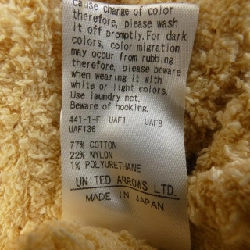 cause change of color
therefore, please wash
it off promptly. For dark
colors, color migration
may occur from rubbing
therefore, please beware
when wearing it with
white or light colors.
Use laundry net.
Beware of hooking.
441-1-F UAF1 UAF3
UAF136
77% COTTON
22% NYLON
1% POLYURETHANE
UNITED ARROWS LTD.
MADE IN JAPAN